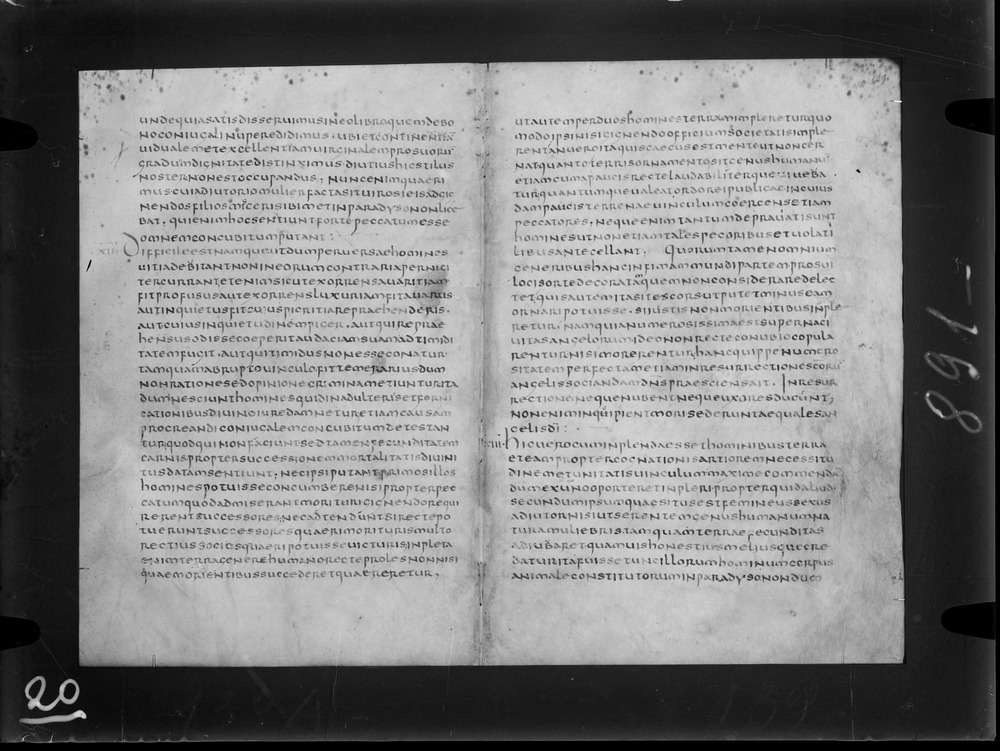 undequiasatisdisseruimusineolibroquemdebo
noconiugalinuperedidimus. ubietcontinentiae
uidualemetexcellentiamuirginalemprosuorum
graduumdignitatedistinximus. diutiushicstilus
nosternonestoccupandus, nuncenimquaeri
muscuiadiutoriomulierfactasituirosieisadgig
nendosfilosmiscerisibimetinparadysononlice
bat, quienimhocsentiuntfortepeccatumesse
omnemconcubitumputant:
XII· Difficileestnamqueutdumperuersachomines
uitiadebitantnonineorumcontrariapernici
tercurrant, etenimsicutexorrensauaritiam
fitprofususautexorrensluxuriamfitauarus
autinquietusfitcuiuspigritiarepraehenderis.
autcuiusinquietudinempiger. autquirepra
hensusodissecoeperitaudaciamsuamadtimidi
tatemfugit. autquitimidusnonesseconatur
tamquamabruptouinculofittemerariusdum
nonrationesedopinionecriminametiunturita
dumnesciunthominesquidinadulteriisetforni
cationibusdiuinoiuredamneturetiamcausam
procreandiconiugalemconcubitumdetestan
turquodquinonfaciuntsedtamenfecunditatem
carnispropter successionemmortalitatisdiuini
tusdatamsentiunt, necipsiputantprimosillos
hominespotuisseconcumberenisipropterpec
catumquodadmiserantmorituri gignendorequi
rerentsuccessores, necadtenduntsirectepo
tueruntsuccessoresquaerimoriturismulto
rectiussociosquaeripotuisseuicturisinpleta
enimterragenerehumanorecteprolesnonnisi
quaemorientibussuccederetquaereretur,
utautemperduoshominesterraimplereturquo
modoipsinisigignendoofficiumsocietatisimple
rentanueroitaquiscaecusestmenteutnoncer
natquantoterrisornamentositgenushumanum
etiamcumapaucisrectelaudabiliterqueuiua
turquantumqueualeatordoreipublicaeincuius
dampacisterrenaeuinculumcoercensetiam
peccatores, nequeenimtantumdeprauatisunt
hominesutnonetiamtalespecoribusetuolati
libusantecellant, Quorumtamenomnium
generibushancinfimammundipartemprosui
locisortedecoratamquemnonconsiderareddelec
tetquisautemitasitexcorsutputetminuseam
ornaripotuisse. siiustisnonmorientibusimple
retur, namquianumerosissimaestsupernaci
uitasangelorumideononrecteconubiocopula
renturnisimorerenturhancquippenumero
sitatemperfectametiaminresurrectionescorum
angelissociandamdnspraesciensait, Inresur
rectionenequenubentnequeuxoresducunt,
nonenimincipientmorisederuntaequalesan
gelisdi:
XIII· Hicuerocuminplendaessethominibusterra
eteampropter cognationisartioremnecessitu
dinemetunitatisuinculummaximecommenda
dumexunooporteretinpleripropterquidaliud
secundumipsumquaesitusestfemineussexus
adiutornisiutserentemgenushumanumna
turamuliebristamquamterraefecunditas
adiubaretquamuishonestiusmeliusquecre
daturitafuissetuncillorumhominumcorpus
animaleconstitutoruminparadysonondum